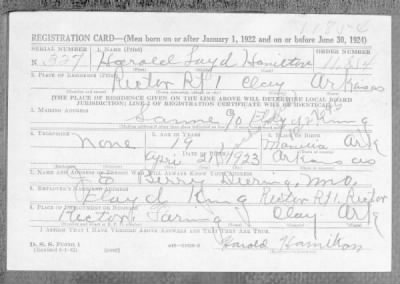 REGISTRATION CARD—(Men born on or after January 1, 1922 and on or before June 30, 1924)
SERIAL NUMBER 1. NAME (Print) ORDER NUMBER
N 337 Harold Loyd Hamilton 11,814
2. PLACE OF RESIDENCE (Print)
Rector Rt 1 Clay Arkansas
[THE PLACE OF RESIDENCE GIVEN ON THE LINE ABOVE WILL DETERMINE LOCAL BOARD
JURISDICTION; LINE 2 OF REGISTRATION CERTIFICATE WILL BE IDENTICAL]
3. MAILING ADDRESS
Same % Floyd King
4. TELEPHONE 5. AGE IN YEARS 6. PLACE OF BIRTH
None 19 Manila Ark
April 28th 1923 Arkansas
7. NAME AND ADDRESS OF PERSON WHO WILL ALWAYS KNOW YOUR ADDRESS
Deering, Mo.
8. EMPLOYER'S NAME AND ADDRESS
Floyd King Rector Rt 1 Rector
9. PLACE OF EMPLOYMENT OR BUSINESS
Rector Farming Clay Ark
I AFFIRM THAT I HAVE VERIFIED ABOVE ANSWERS AND THAT THEY ARE TRUE.
D. S. S. FORM 1
Harold Hamilton